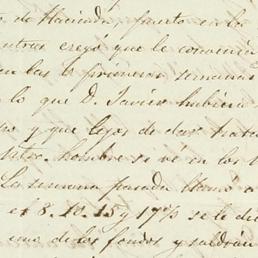 de Hacienda, puesto en la
entras creyó que le convenia
en las 6 primeras semanas
lo que D. Javier hubiera
y que lejos de dar
hombre se vé en los
La semana pasada llamó a
el 8. 10. 15 y 17 1/2 se le
uno de los fondos y saldrán